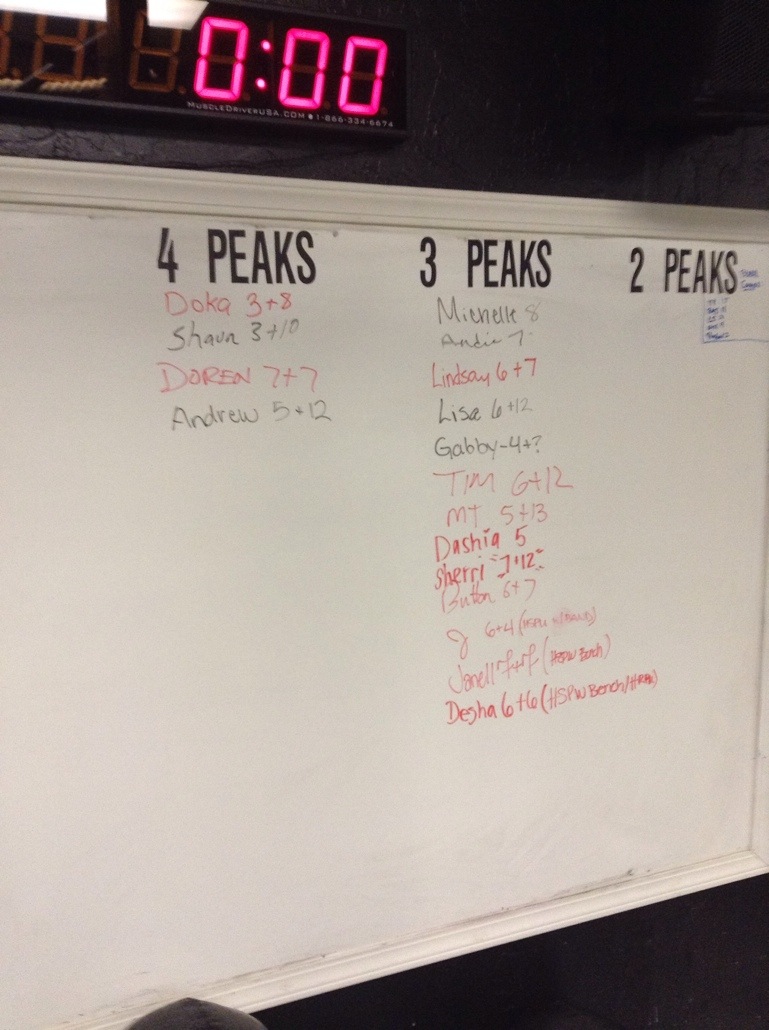 0:00
MUSCLEDRIVERUSA.COM • 1-866-334-6674
4 PEAKS
Doka 3+8
Shaun 3+10
DOREN 7+7
Andrew 5+12
3 PEAKS
Michelle 8
Andie 7
Lindsay 6+7
Lisa 6+12
Gabby-4+?
TIM 6+12
MT 5+13
Dashia 5
Sherri "7+12"
Button 6+7
J 6+4 (HSPU
Janell (HSPW Bench)
Desha 6+6 (HSPW Bench/
2 PEAKS